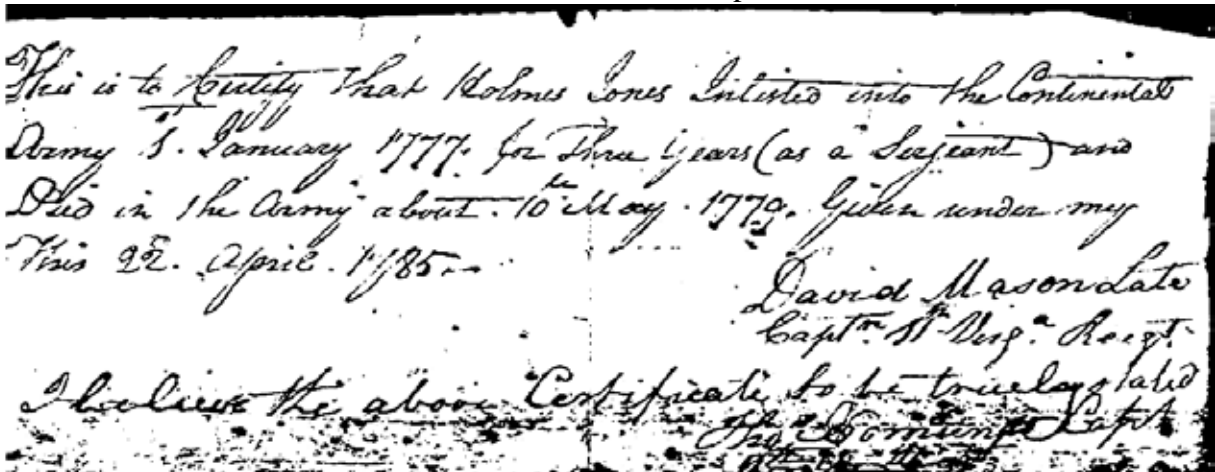 This is to Certify that Holmes Jones Inlisted into the Continental
Army 1st January 1777. for Three years (as a Serjeant) and
Died in the Army about 10th May 1779. Given under my
This 22d. April. 1785.
David Mason Late
Captn. 11th Virga. Regt.
I believe the above Certificate to be truely stated
Thos. Capt